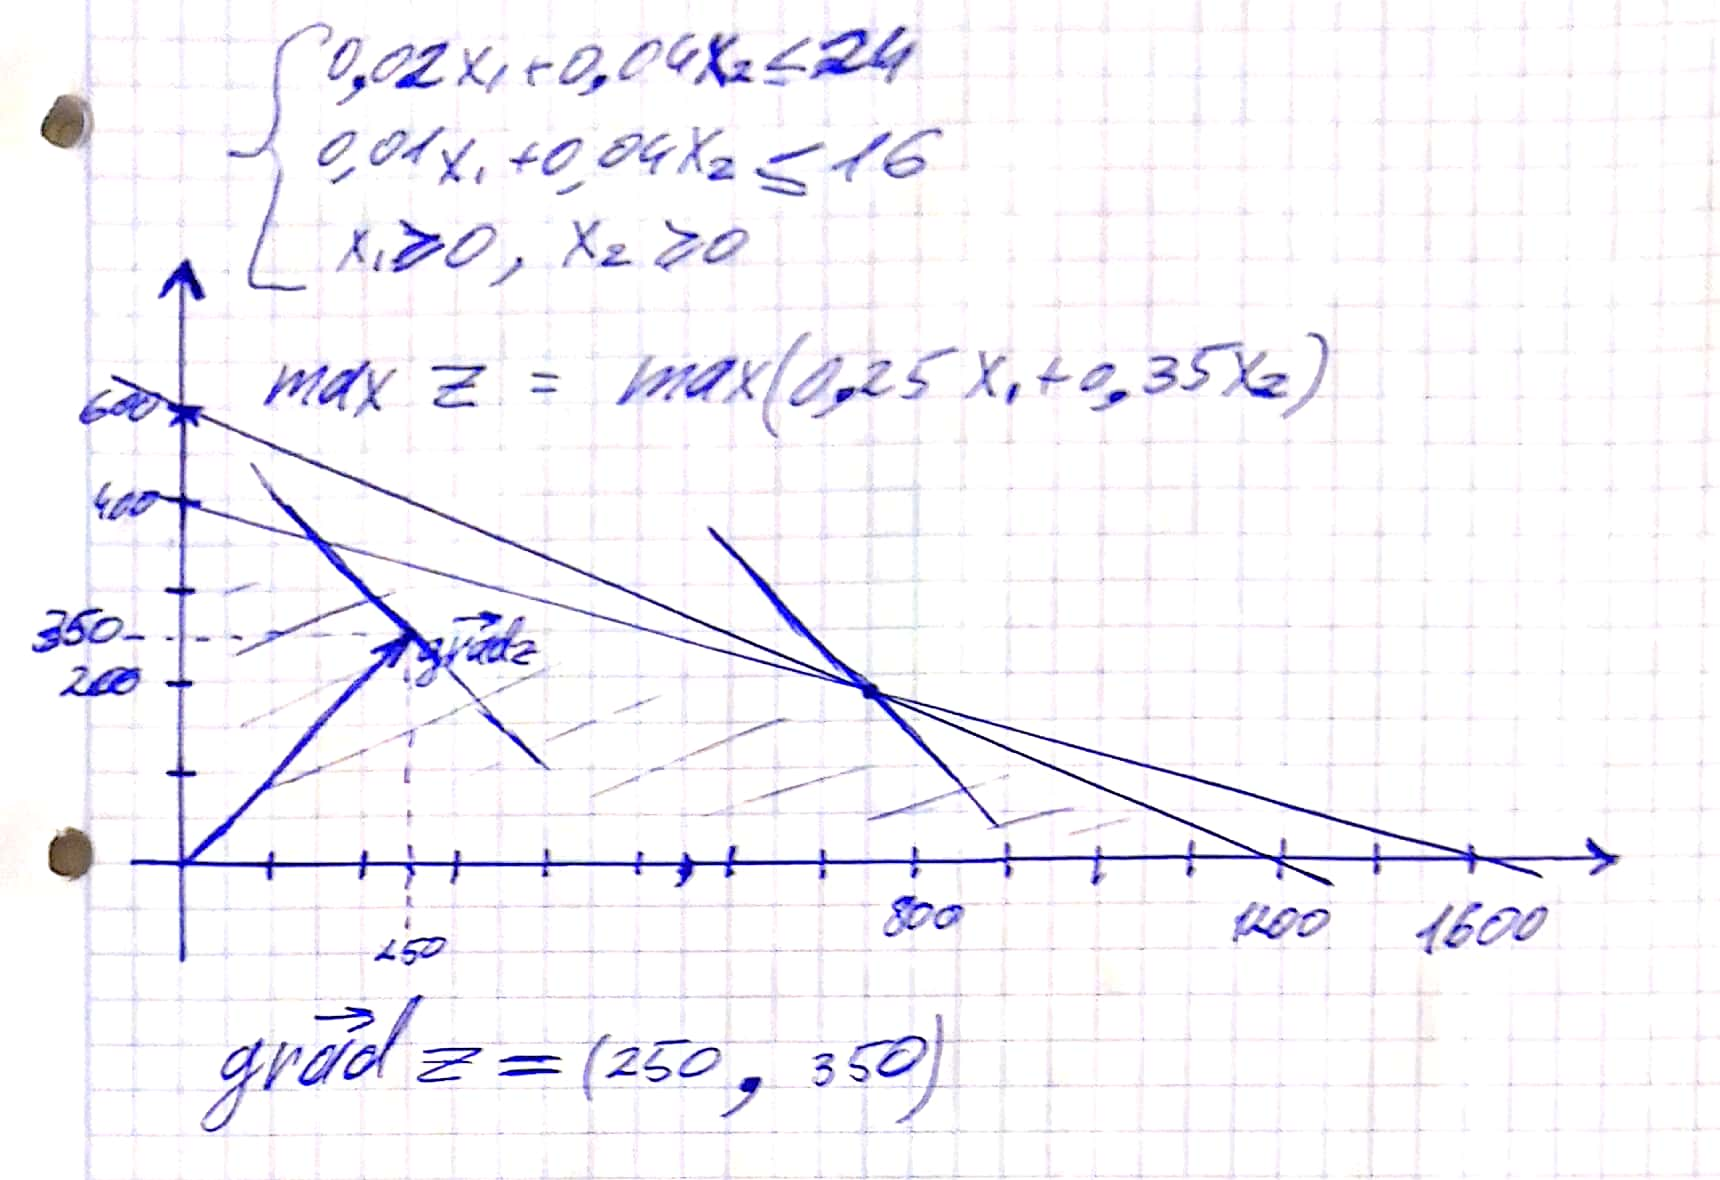 0,02x₁+0,04x₂≤24
0,01x₁+0,04x₂≤16
x₁≥0, x₂≥0
max z = max(0,25x₁+0,35x₂)
600
400
350
grad z
200
250
800
1200
1600
grad z = (250, 350)